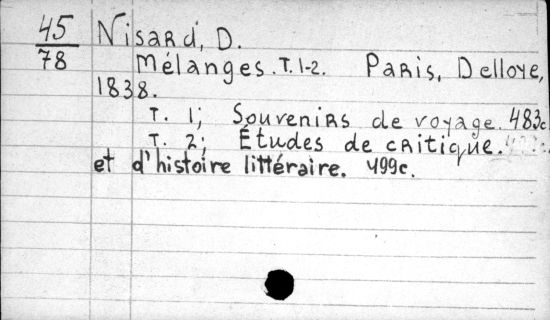 45
78
Nisard, D.
Mélanges. T. 1-2. Paris, Delloye,
1838.
T. 1; Souvenirs de voyage. 483c.
T. 2; Études de critique.
et d'histoire littéraire. 499c.